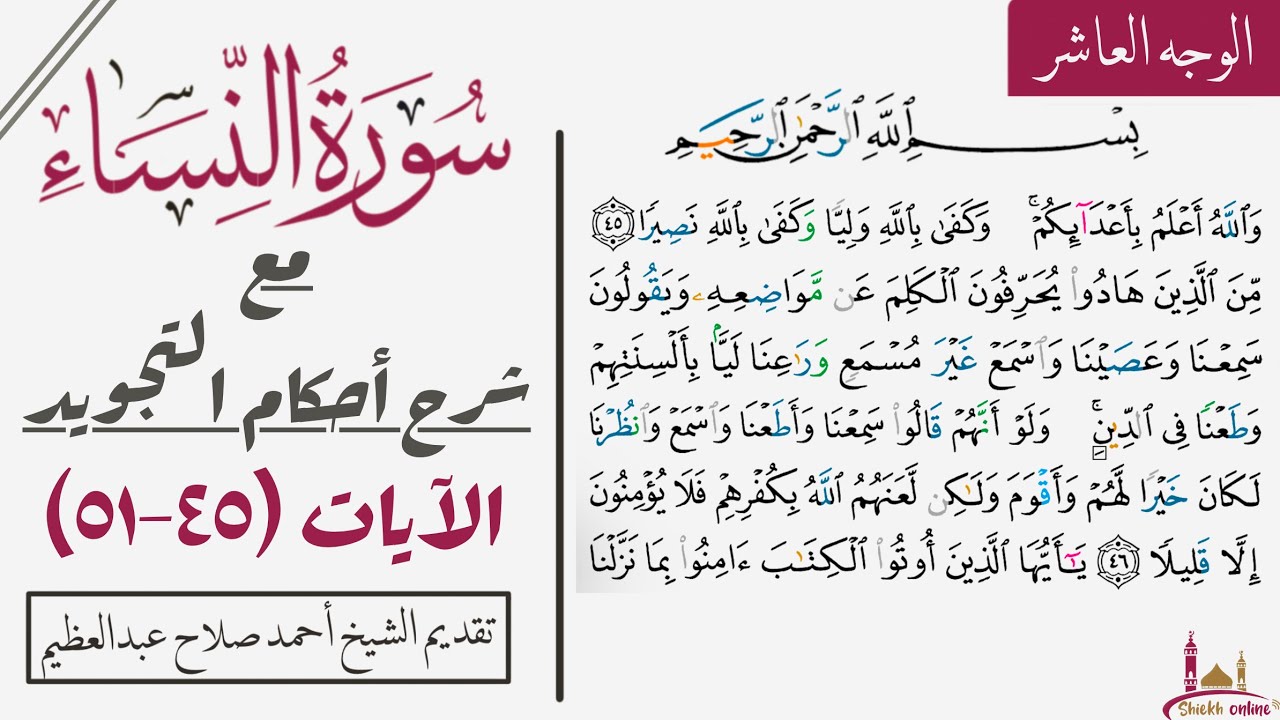 الوجه العاشر
سُورَةُ النِّسَاءِ
مع
شرح أحكام التجويد
الآيات (٤٥-٥١)
تقديم الشيخ أحمد صلاح عبدالعظيم
بِسْمِ ٱللَّهِ ٱلرَّحْمَٰنِ ٱلرَّحِيمِ
وَٱللَّهُ أَعْلَمُ بِأَعْدَآئِكُمْ ۚ وَكَفَىٰ بِٱللَّهِ وَلِيًّا وَكَفَىٰ بِٱللَّهِ نَصِيرًا ٤٥
مِّنَ ٱلَّذِينَ هَادُوا۟ يُحَرِّفُونَ ٱلْكَلِمَ عَن مَّوَاضِعِهِۦ وَيَقُولُونَ
سَمِعْنَا وَعَصَيْنَا وَٱسْمَعْ غَيْرَ مُسْمَعٍ وَرَٰعِنَا لَيًّۢا بِأَلْسِنَتِهِمْ
وَطَعْنًا فِى ٱلدِّينِ ۚ وَلَوْ أَنَّهُمْ قَالُوا۟ سَمِعْنَا وَأَطَعْنَا وَٱسْمَعْ وَٱنظُرْنَا
لَكَانَ خَيْرًا لَّهُمْ وَأَقْوَمَ وَلَٰكِن لَّعَنَهُمُ ٱللَّهُ بِكُفْرِهِمْ فَلَا يُؤْمِنُونَ
إِلَّا قَلِيلًا ٤٦ يَٰٓأَيُّهَا ٱلَّذِينَ أُوتُوا۟ ٱلْكِتَٰبَ ءَامِنُوا۟ بِمَا نَزَّلْنَا
Shiekh online